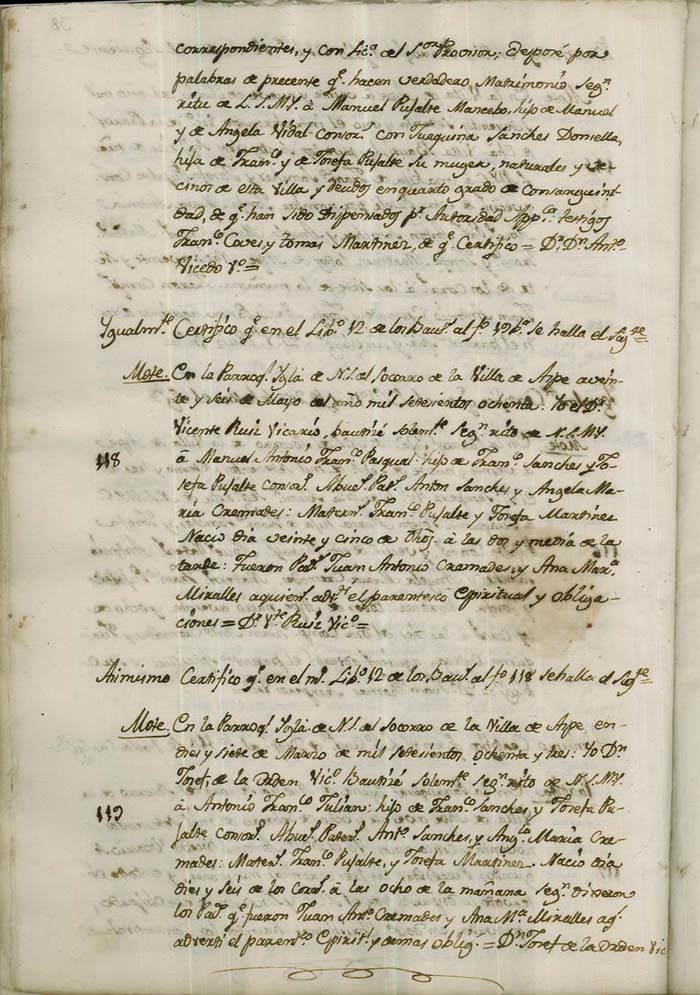 correspondientes, y con Lic.ª del S.or Provisor; Desposé por
palabras de precente q.e hacen verdadero, Matrimonio Seg.n
ritu de L. S. M. Y. à Manuel Pujalte Mancebo, hijo de Manuel
y de Angela Vidal consor.s con Juaquina Sanches Donsella,
hija de Fran.co y de Josefa Pujalte su muger, naturales y ve-
cinos de esta Villa y deudos en quarto grado de Consanguini-
dad, de q.e han sido dispensados p.r Autoridad App.ca testigos
Fran.co Caves, y tomas Martinez, de q.e Certifico = D.r D.n Ant.o
Vicedo V.o =
Ygualm.te Certifico q.e en el Lib.o 12 de los Baut.s al f.o 196.o se halla el Sig.te
Mote. En la Parroq.l Ygla. de N. S. del Socorro de la Villa de Aspe a vein-
te y seis de Mayo del año mil setesientos ochenta: Yo el D.r
Vicente Ruiz Vicario, bautizé Solem.te Seg.n rito de N. S. M. Y.
118
à Manuel Antonio Fran.co Pasqual: hijo de Fran.co Sanches y Jo-
sefa Pujalte consor.s Abuel.s Pat.s Anton Sanches y Angela Ma-
ria Cremades: Matern.s Fran.co Pujalte y Josefa Martinez
Nacio dia veinte y cinco de Dhoj. à las dos y media de la
tarde: Fueron Pad.s Juan Antonio Cremades, y Ana Mar.a
Miralles a quien.s adv.tí el parentesco Espiritual y obliga-
ciones = D.r V.te Ruiz Vic.o =
Asimismo Certifico q.e en el m.o Lib.o 12 de los Bau.s al f.o 118 se halla el Sig.te
Mote. En la Parroq.l Ygla. de N. S. del Socorro de la Villa de Aspe en
dies y siete de Marzo de mil setesientos ochenta y tres: Yo D.n
Josef, de la Orden Vic.o Bautizé Solem.te Seg.n rito de N. S. M. Y.
119
à Antonio Fran.co Julian: hijo de Fran.co Sanches, y Josefa Pu-
jalte consor.s Abuel.s Pater.s Ant.o Sanches, y Ang.a Maria Cre-
mades: Mater.s Fran.co Pujalte, y Josefa Martinez. Nacio dia
dies y seis de los Corr.s à las ocho de la mañana seg.n dixeron
los Pad.s q.e fueron Juan Ant.o Cremades y Ana M.a Miralles a q.s
adverti el parent.co Espirit.l y demas oblig.s = D.n Josef de la Orden Vic.